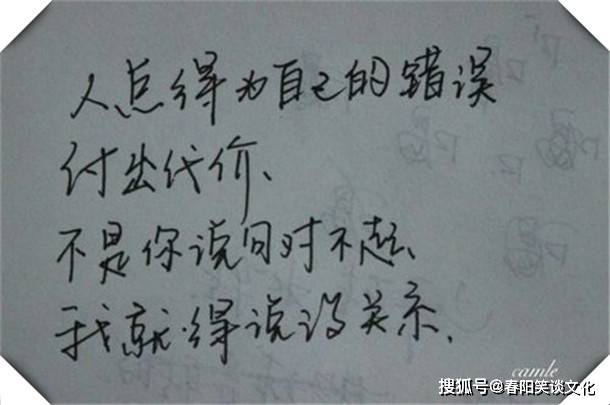 人总得为自己的错误
付出代价、
不是你说句对不起、
我就得说没关系、
camle
搜狐号@春阳笑谈文化